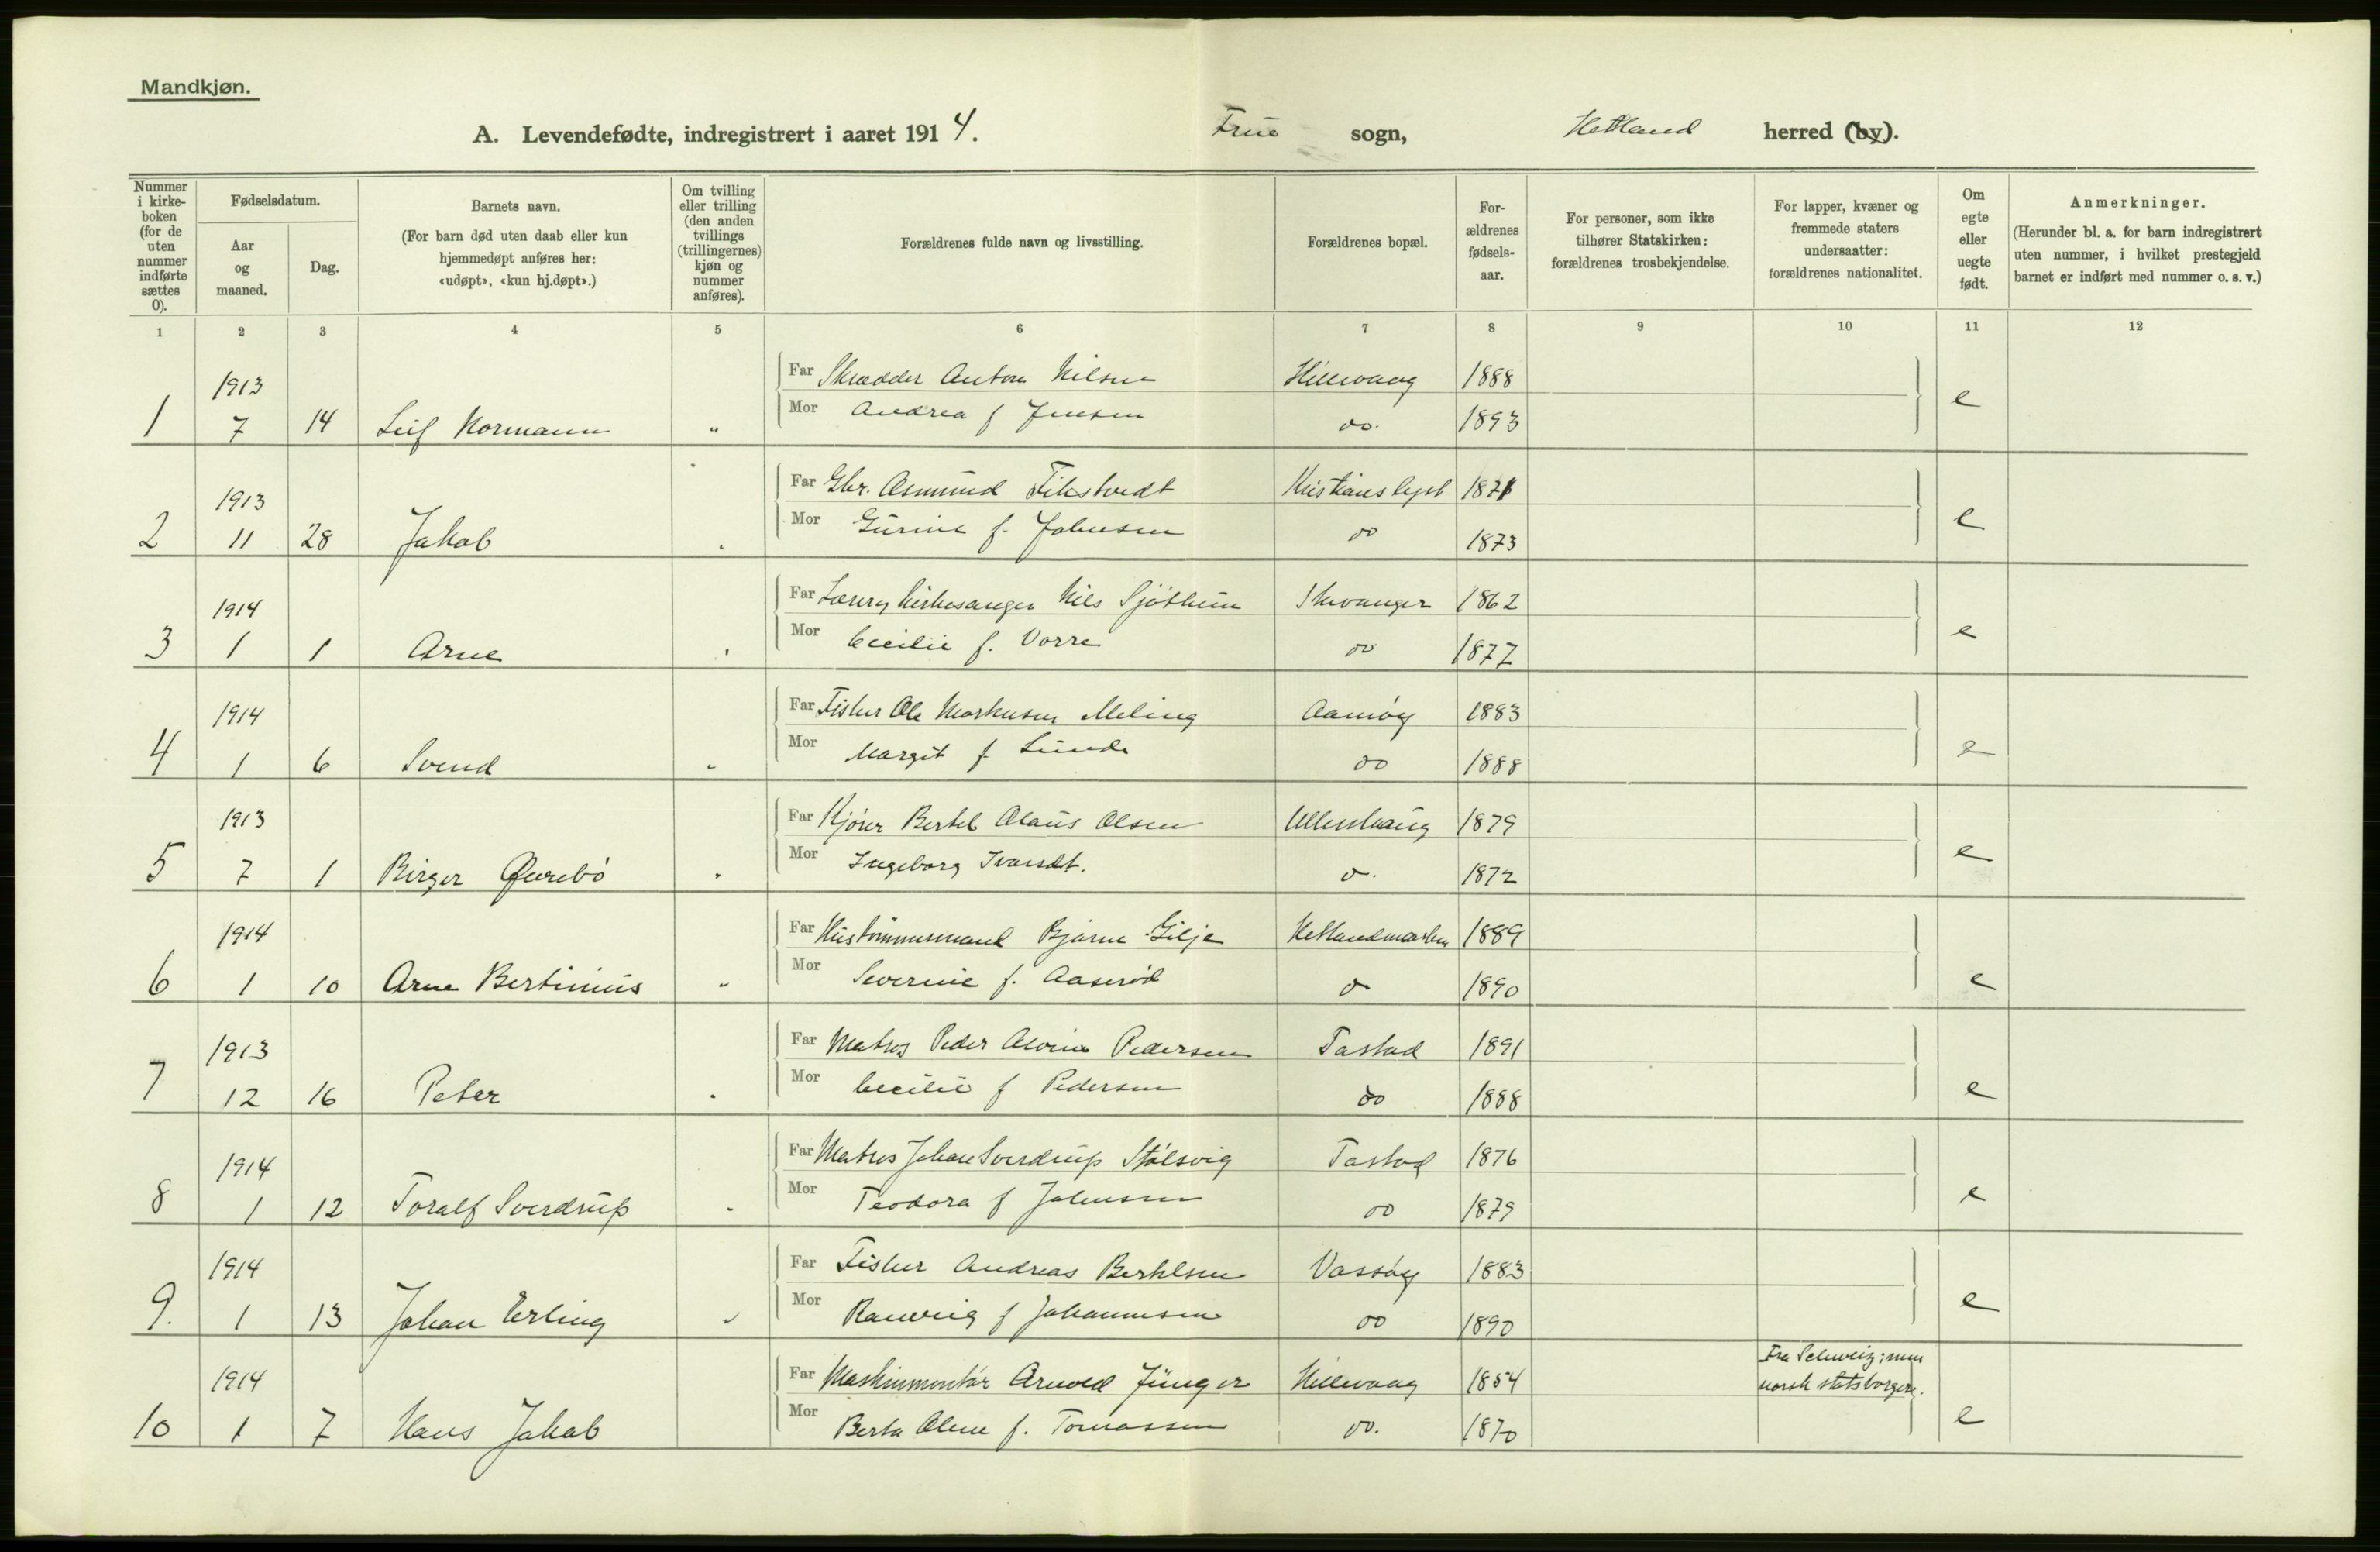 Mandkjøn.
A. Levendefødte, indregistrert i aaret 1914. Frue sogn, Hetland herred (by).
Nummer i kirke-boken (for de uten nummer indførte sættes 0).
Fødselsdatum.
Aar og maaned.
Dag.
Barnets navn.
(For barn død uten daab eller kun hjemmedøpt anføres her: «udøpt», «kun hj.døpt».)
Om tvilling eller trilling (den anden tvillings (trillingernes) kjøn og nummer anføres).
Forældrenes fulde navn og livsstilling.
Forældrenes bopæl.
For-ældrenes fødsels-aar.
For personer, som ikke tilhører Statskirken: forældrenes trosbekjendelse.
For lapper, kvæner og fremmede staters undersaatter: forældrenes nationalitet.
Om egte eller uegte født.
Anmerkninger.
(Herunder bl. a. for barn indregistrert uten nummer, i hvilket prestegjeld barnet er indført med nummer o. s. v.)
1 2 3 4 5 6 7 8 9 10 11 12
1913 Far Skrædder Anton Nilsen Hillevaag 1888
1 7 14 Leif Normann " Mor Andrea f Jensen do. 1893 e
1913 Far Gbr. Asmund Tilstvedt Kristianslyst 1871
2 11 28 Jakob Mor Gurine f. Johnsen do 1873 e
1914 Far Lærer, kirkesanger Nils Sjøthun Stavanger 1862
3 1 1 Arne Mor Cecilie f. Vorre do 1877 e
1914 Far Fisker Ole Markusen Meling Aamøy 1883
4 1 6 Svend " Mor Margit f Lunde do 1888 e
1913 Far Kjører Bertel Olaus Olsen Ullenhaug 1879
5 7 1 Birger Mor Ingeborg Ivarsdt. do. 1872 e
1914 Far Hustømmermand Bjarne Gilje Hetlandmarken 1889
6 1 10 Arne Bertinius " Mor Severine f. Aaserød do 1890 e
1913 Far Matros Peder Pedersen Tastad 1891
7 12 16 Peter Mor Cecilie f Pedersen do 1888 e
1914 Far Matros Johan Sverdrup Stølsvig Tastad 1876
8 1 12 Toralf Sverdrup Mor Teodora f Johnsen do 1879 e
1914 Far Fisker Andreas Bertelsen Vassøy 1883
9. 1 13 Johan Erling " Mor Ranveig f Johannesen do 1890 e
1914 Far Maskinmontør Arnold Jünger Hillevaag 1854 Fra Schweiz; men norsk statsborger.
10 1 7 Hans Jakob Mor Berta Oline f. Tomassen do. 1870 e